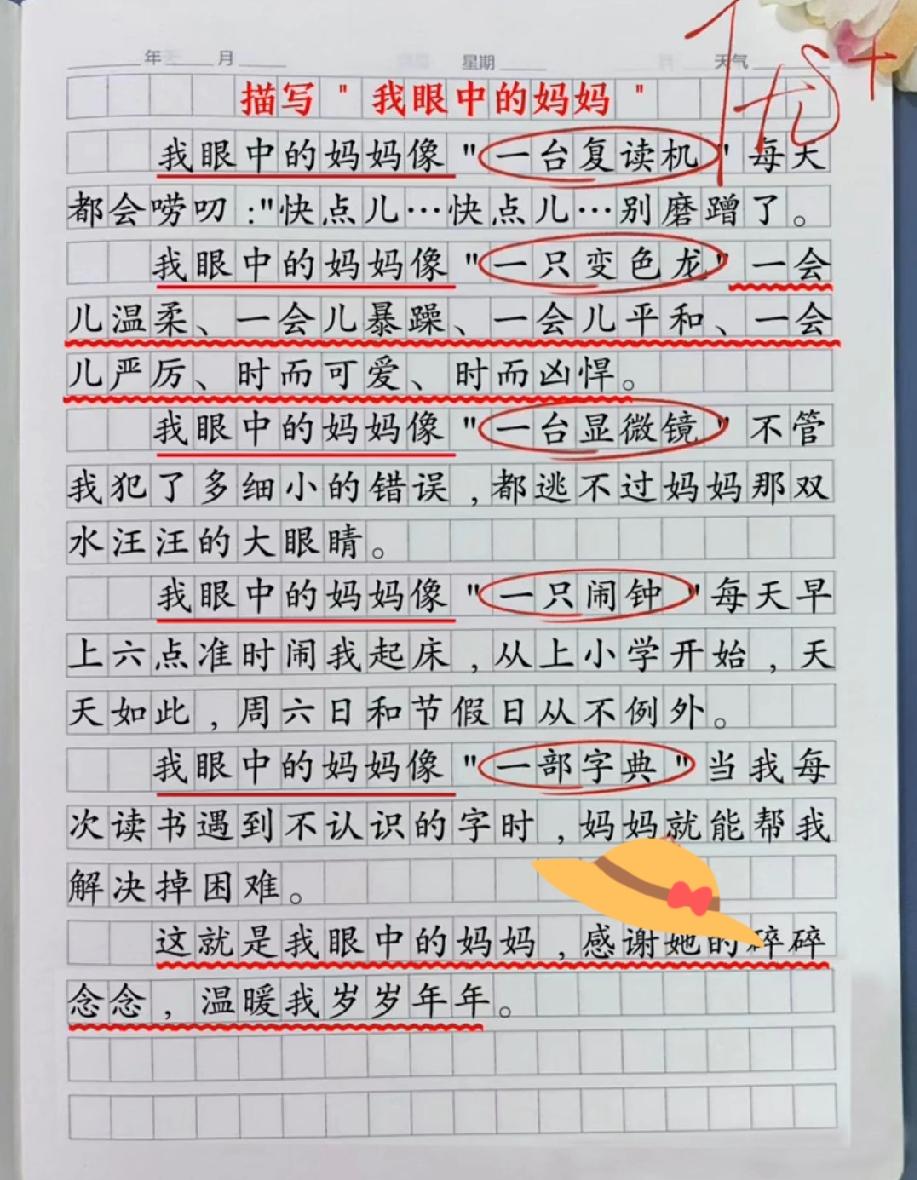 年 月 星期 天气
描写"我眼中的妈妈"
我眼中的妈妈像"一台复读机"每天
都会唠叨:"快点儿…快点儿…别磨蹭了。
我眼中的妈妈像"一只变色龙"一会
儿温柔、一会儿暴躁、一会儿平和、一会
儿严厉、时而可爱、时而凶悍。
我眼中的妈妈像"一台显微镜"不管
我犯了多细小的错误,都逃不过妈妈那双
水汪汪的大眼睛。
我眼中的妈妈像"一只闹钟"每天早
上六点准时闹我起床,从上小学开始,天
天如此,周六日和节假日从不例外。
我眼中的妈妈像"一部字典"当我每
次读书遇到不认识的字时,妈妈就能帮我
解决掉困难。
这就是我眼中的妈妈,感谢她的碎碎
念念,温暖我岁岁年年。